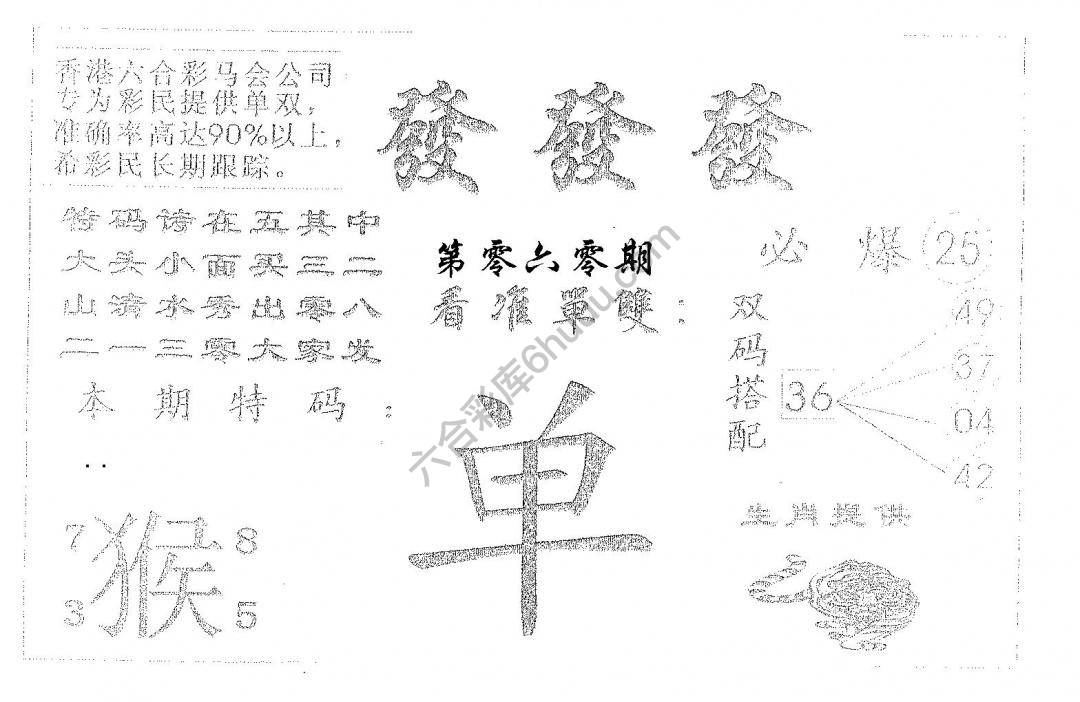 香港六合彩马会公司
专为彩民提供单双，
准确率高达90%以上，
希彩民长期跟踪。
發發發
特码诗在五其中
大头小面买三二
山清水秀出零八
二一三零大家发
第零六零期
看准單雙：
必爆 25
双码搭配
36
49
37
04
42
本期特码：
单
生肖提供
7 猴 8
3 5
六合彩库6huku.com